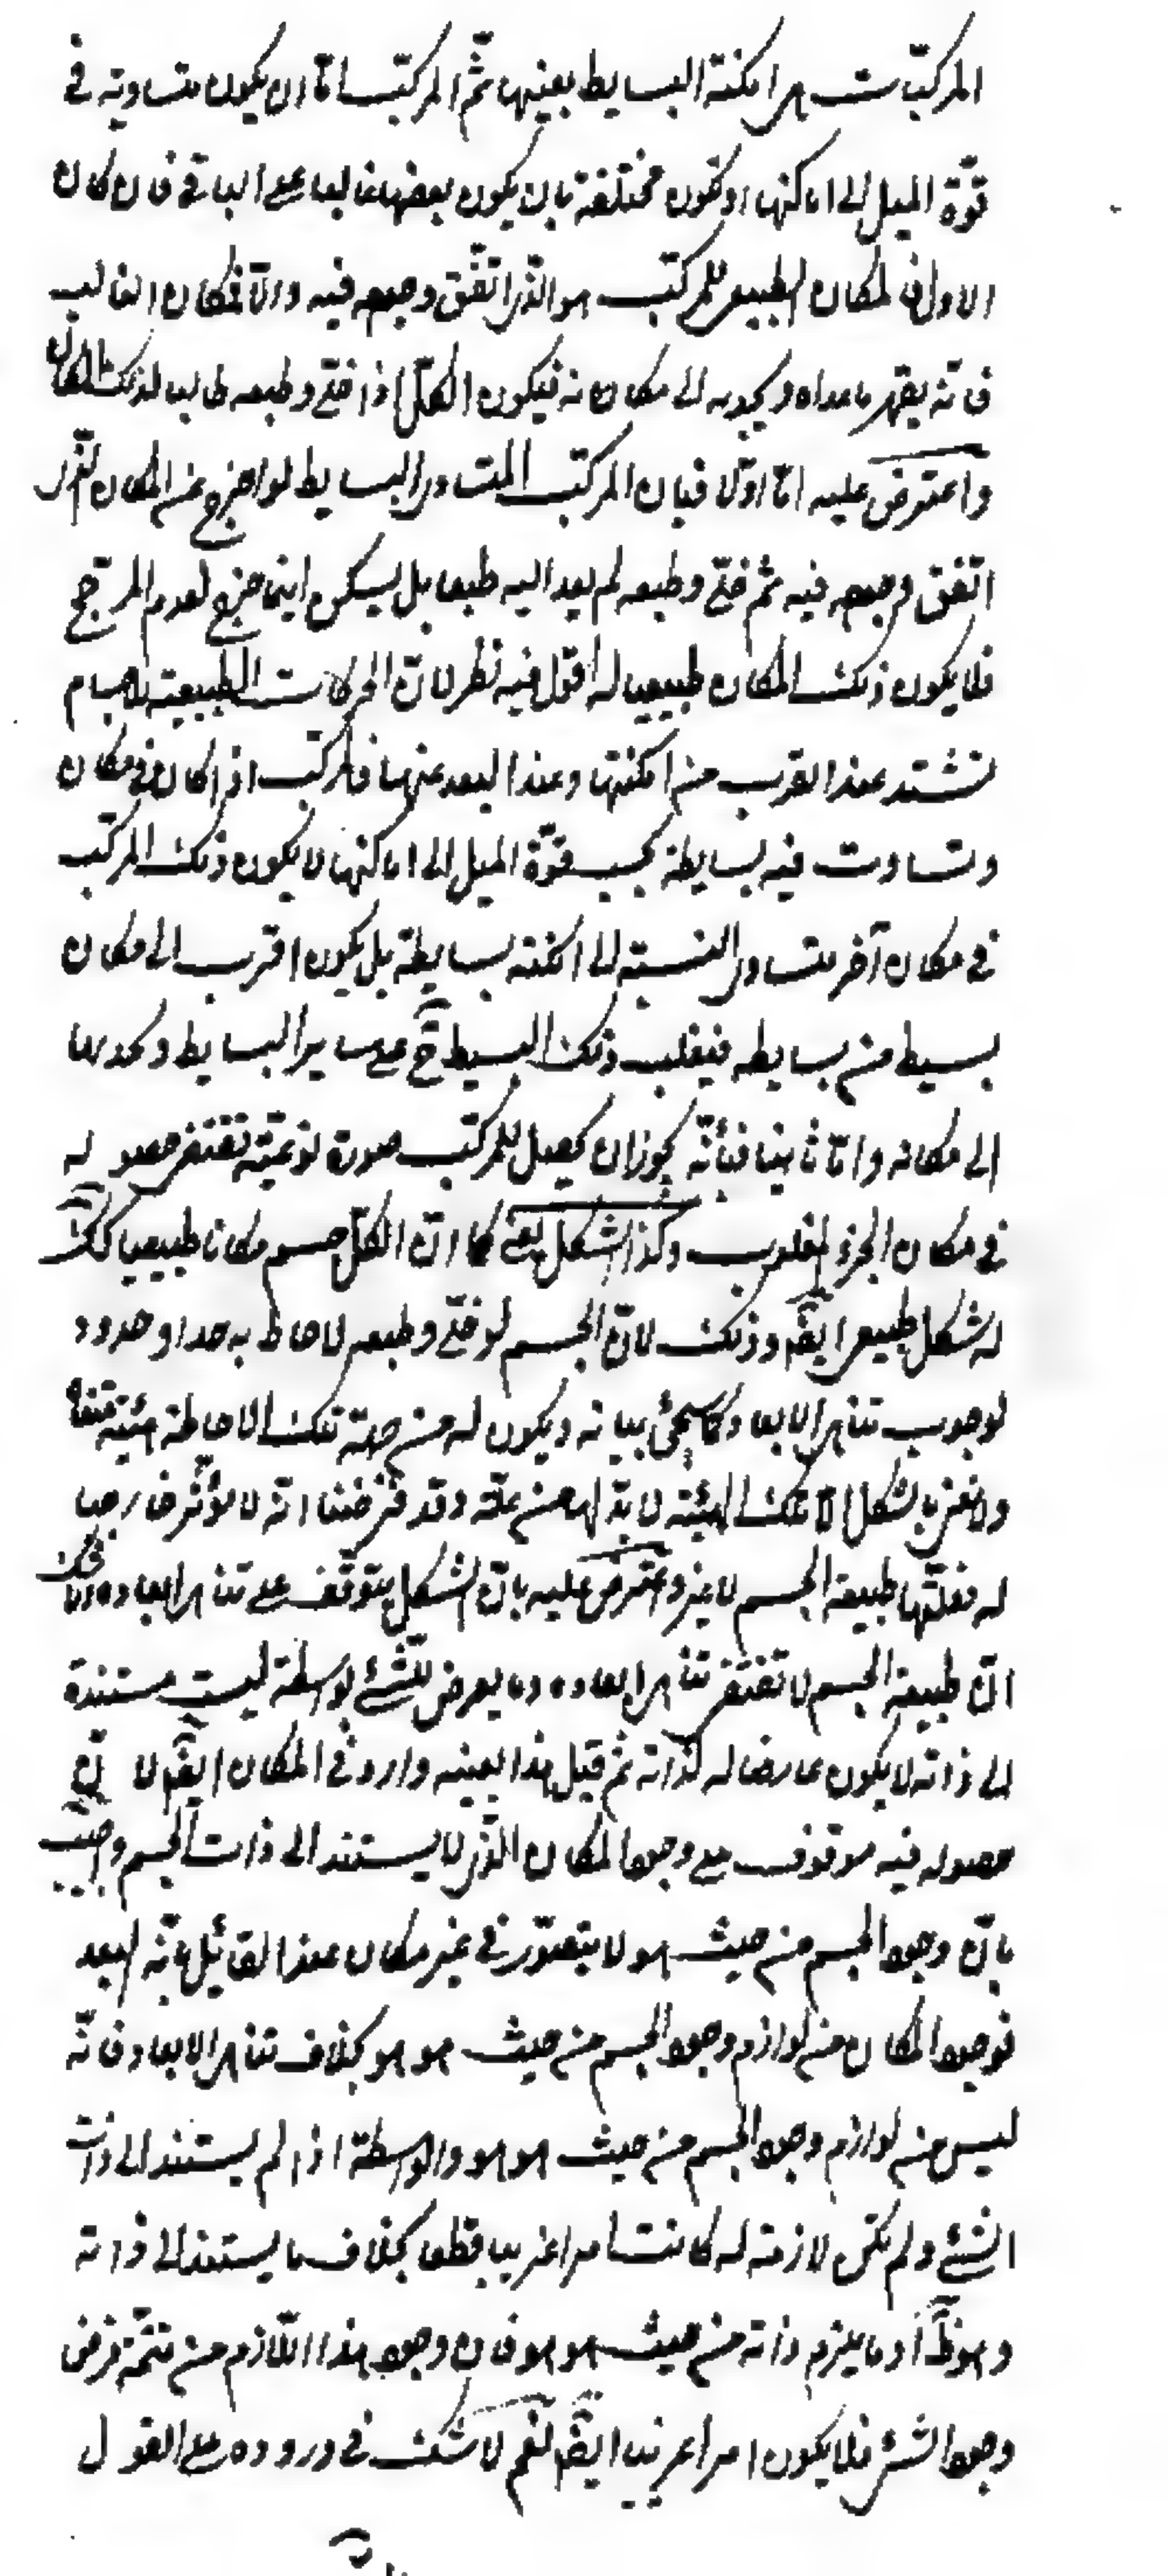 المركّبات هي امكنة البسايط بعينها ثمّ المركّب امّا ان يكون متساوية في
قوّة الميل الى اماكنها او تكون مختلفة بان يكون بعضها غالبا على الباقي فان كان
الاول فالمكان الطبيعي للمركّب هو الذي اتّفق وجوده فيه والّا فمكان الغالب
فانّه يقهر ماعداه ويجذبه الى مكانه فيكون الكلّ اذا خلّي وطبعه طالبا لذلك المكان
واعترض عليه امّا اوّلا فبان المركّب المتساوي البسايط لو اخرج عن المكان الذي
اتفق وجوده فيه ثم خلّي وطبعه لم يعد اليه طبعا بل يسكن اينما خرج لعدم المرجّح
فلا يكون ذلك المكان طبيعيا له اقول فيه نظر لانّ الحركات الطبيعية للاجسام
تشتد عند القرب من امكنتها وعند البعد عنها فالمركّب اذا كان في مكان
وتساوت فيه بسايطه بحسب قوّة الميل الى اماكنها لا يكون ذلك المركّب
في مكان آخر متساوي النسبة الى امكنة بسايطه بل يكون اقرب الى مكان
بسيط من بسايطه فيغلب ذلك البسيط ح على ساير البسايط ويجذبها
الى مكانه وامّا ثانيا فبأنّه يجوز ان يحصل للمركّب صورة نوعيّة تقتضي حصوله
في مكان الجزء المغلوب وكذا الشكل يعني كما انّ لكلّ جسم مكانا طبيعيا كك
له شكل طبيعي ايضم وذلك لانّ الجسم لو خلّي وطبعه لاحاط به حد او حدود
لوجوب تناهي الابعاد كما سيجئ بيانه ويكون له من جهة تلك الاحاطة هيئة
ولا نعني بالشكل الا تلك الهيئة لا بدّ لها من علّة وقد فرضنا انّه لا مؤثّر خارجيا
له فعلّتها طبيعة الجسم لا غير واعترض عليه بانّ الشكل يتوقّف على تناهي ابعاده
انّ طبيعة الجسم لا تقتضي تناهي ابعاده وما يعرض للشئ بواسطة ليست مستندة
الى ذاته لا يكون عارضا له لذاته ثم قيل هذا بعينه وارد في المكان ايضم لانّ
حصوله فيه موقوف على وجود المكان الذي لا يستند الى ذات الجسم واجيب
بانّ وجود الجسم من حيث هو لا يتصوّر في غير مكان عند القائل بانّه البعد
فوجود المكان من لوازم وجود الجسم من حيث هو هو بخلاف تناهي الابعاد فانّه
ليس من لوازم وجود الجسم من حيث هو هو والواسطة اذا لم يستند الى ذات
الشئ ولم تكن لازمة له كانت امرا غريبا قطعا بخلاف ما يستند الى ذاته
وهو ظ أو ما يلزم ذاته من حيث هو هو فان وجود هذا اللّازم من تتمّة فرض
وجود الشئ فلا يكون امرا غريبا ايضم نعم لا شكّ في وروده على القول